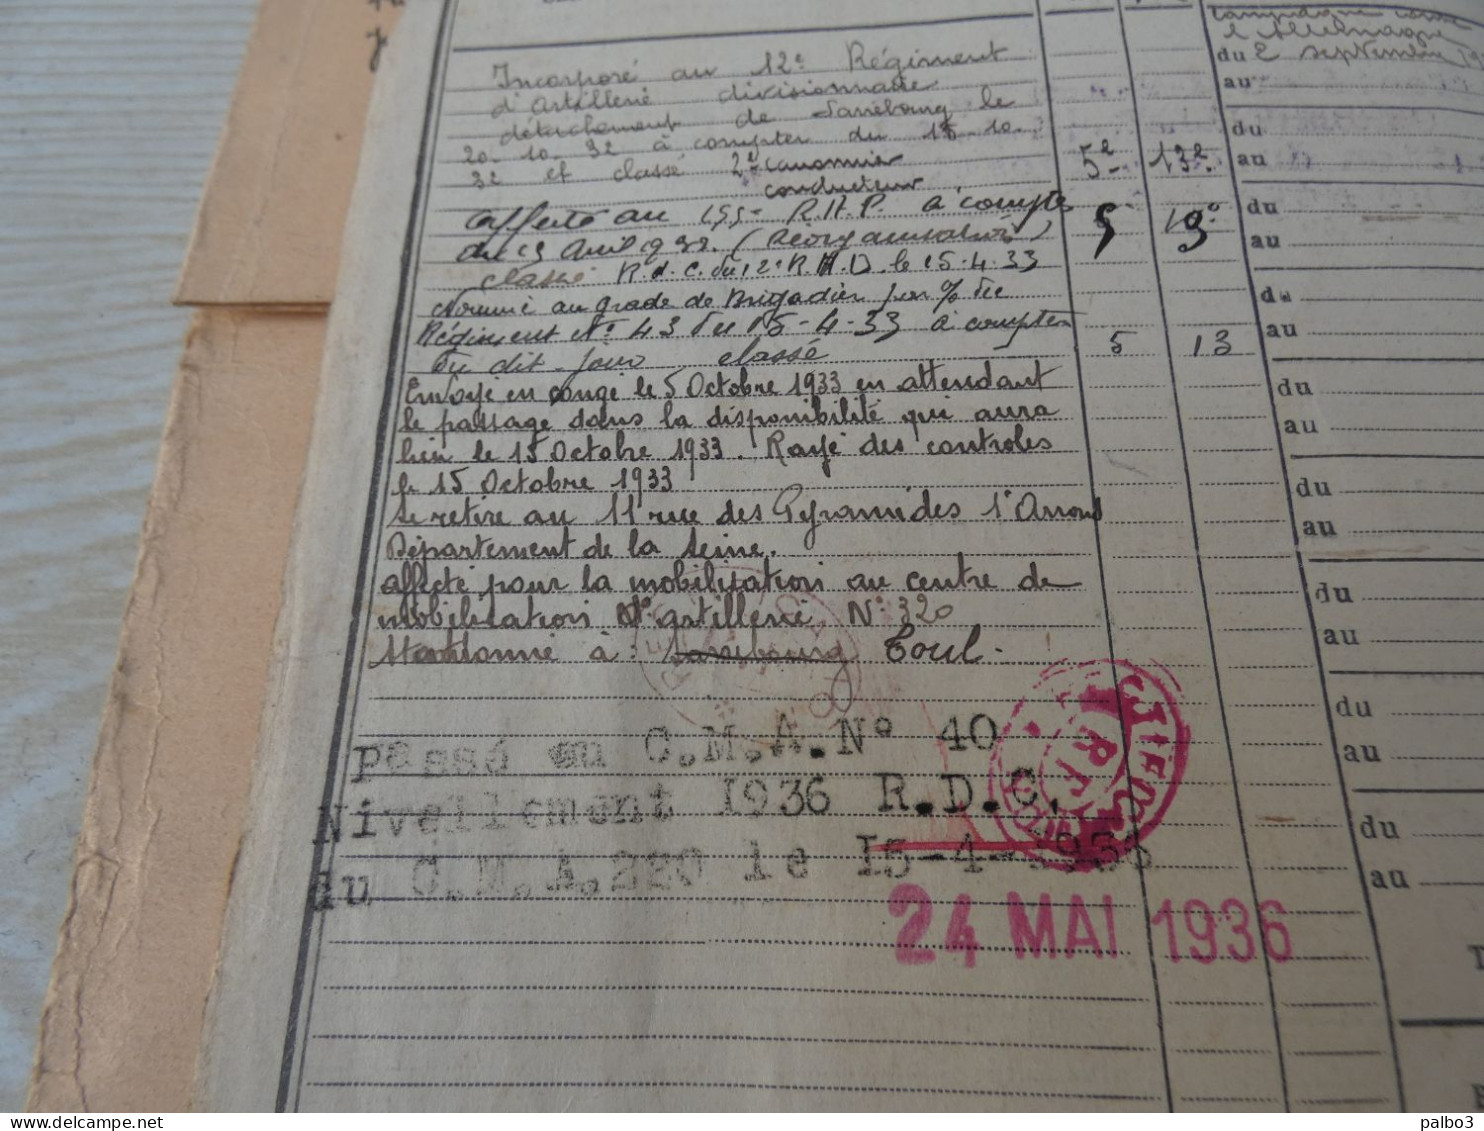 Campagne contre
l'Allemagne
du 2 septembre 19
au
Incorporé au 12e Régiment
d'Artillerie divisionnaire
détachement de Sarrebourg le
20-10-32 à compter du 15-10-
32 et classé 2e canonnier
conducteur
5e 13e
du
au
Affecté au 155 R.A.P. à compter
du 15 Avril 1932. (Réorganisation)
5 13e
du
au
classé R.d.C. du 12e R.A.D. le 15.4.33
Nommé au grade de Brigadier par % du
Régiment No 43 du 15-4-33 à compter
du dit jour classé
5 13
du
au
Envoyé en congé le 5 Octobre 1933 en attendant
le passage dans la disponibilité qui aura
lieu le 15 Octobre 1933. Rayé des controles
le 15 Octobre 1933
du
au
Se retire au 11 rue des Pyramides 1e Arrond
Département de la Seine.
du
au
affecté pour la mobilisation au centre de
mobilisation d'artillerie No 320
stationné à Sarrebourg Toul.
du
au
Passé au C.M.A.No 40
Nivellement 1936 R.D.C.
du C.M.A.220 le 15-4-1936
24 MAI 1936
du
au
du
au
palbo3